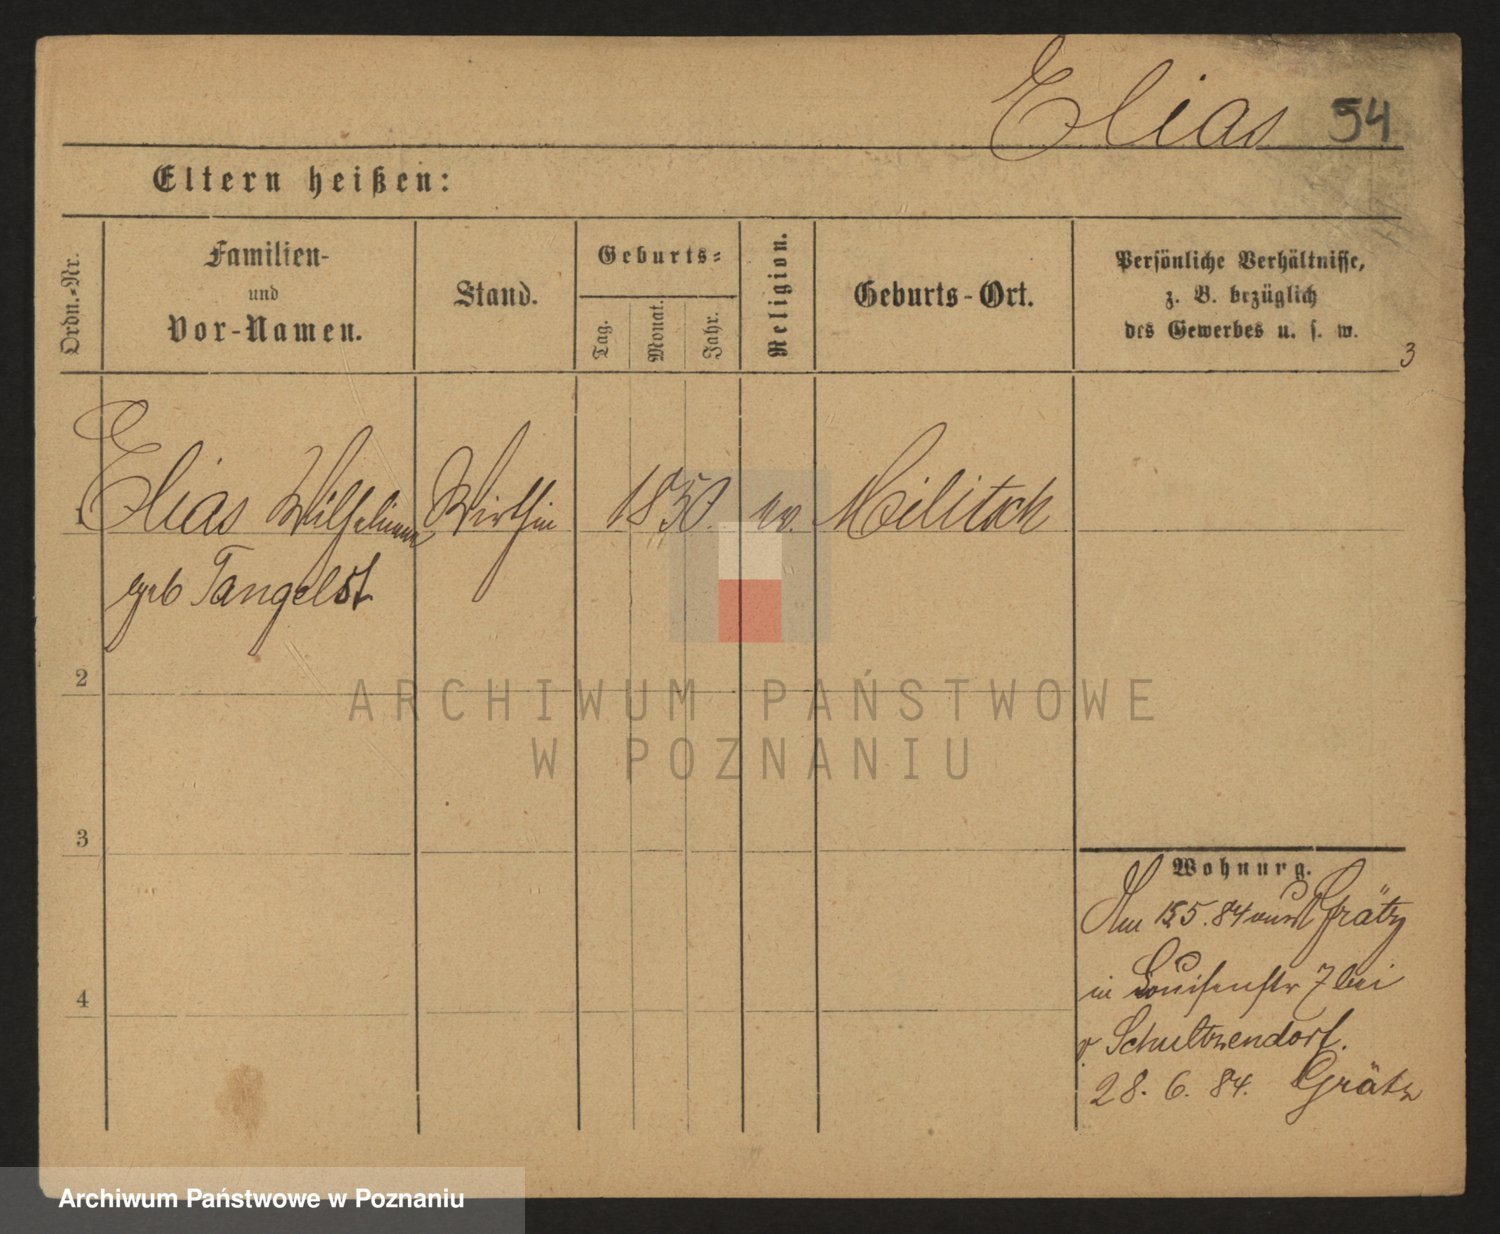 Elias 54
Eltern heißen:
Ordn.-Nr.
Familien-
und
Vor-Namen.
Stand.
Geburts-
Tag.
Monat.
Jahr.
Religion.
Geburts-Ort.
Persönliche Verhältnisse,
z. B. bezüglich
des Gewerbes u. s. w.
3
1 Elias Wilhelmine Wirthin 1850. ev. Militsch
geb Tangelst
2
3
4
Wohnung.
Am 15.5.84 aus Grätz
in Louisenstr 7 bei
v Schultzendorf.
28. 6. 84. Grätz
ARCHIWUM PAŃSTWOWE
W POZNANIU
Archiwum Państwowe w Poznaniu